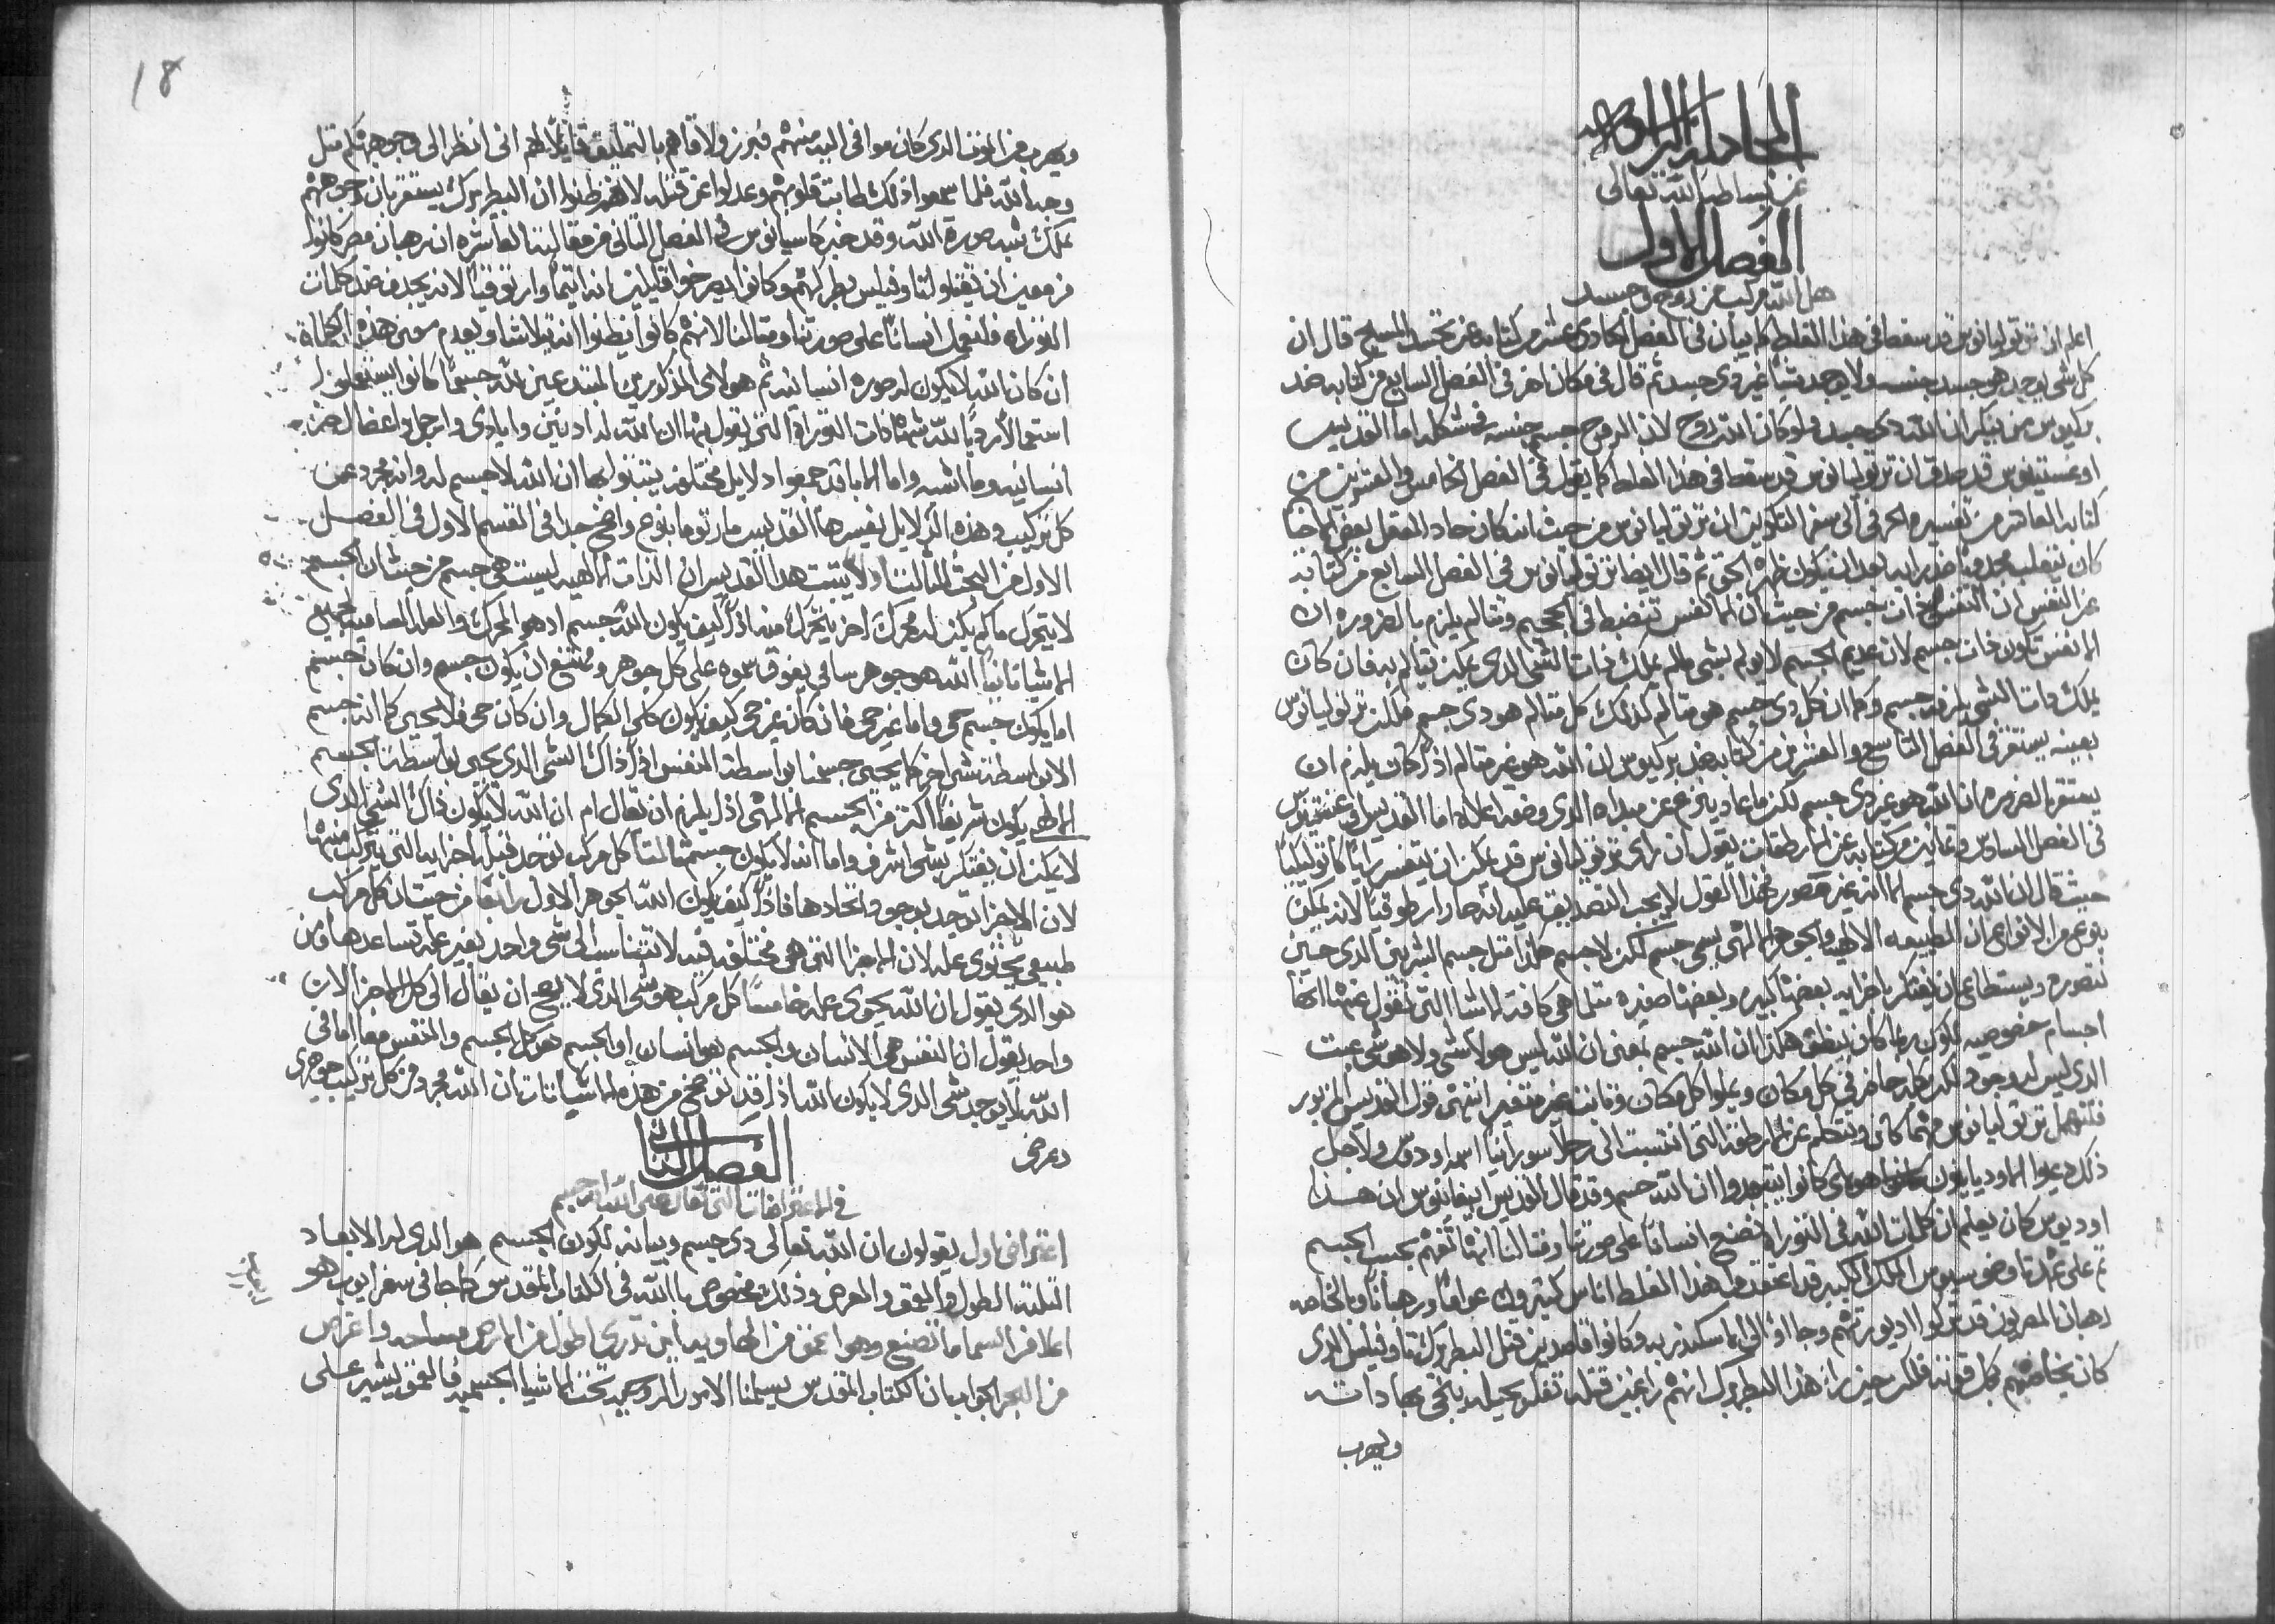 المجادله الرابعه
عن بساطة الله تعالى
الفصل الاول
هل الله مركب من روح وجسد
اعلم ان ترتوليانوس قد سقط في هذا الغلط كما بيان في الفصل الحادي عشر من كتابه عن تجسد المسيح قال ان
كل شي يوجد هو جسد بجنسه ولا يوجد شيأ غير ذي جسد ثم قال في مكان اخر في الفصل السابع من كتابه ضد
بركيوس من ينكر ان الله ذي جسد ولو كان الله روح لان الروح جسم بجنسه في شكله اما القديس
اوغستينوس قد صدق ان ترتوليانوس قد سقط في هذا الغلط كما يقول في الفصل الخامس والعشرين من
كتابه العاشر من تفسيره الحرفي الى سفر التكوين ان ترتوليانوس من حيث انه كان حاد العقل بعض احيانا
كان يتغلب مجذوبا ضد رايه بعد ان يكون ظهره الحق ثم قال ايضا ترتوليانوس في الفصل السابع من كتابه
عن النفس ان النفس ذات جسم من حيث ان النفس تنضبط في الجحيم وتتالم يلزم بالضروره ان
النفس تكون ذات جسم لان عديم الجسم لا يولم بشي مالم يملك ذات الشي الذي يمكن يتالم به فان كان
يملك ذات الشي يلزمه جسم وكما ان كل ذي جسم هو متالم كذلك كل متالم هو ذي جسم فلكن ترتوليانوس
بعينه يستقر في الفصل التاسع والعشرين من كتابه ضد بركيوس ان الله هو غير متالم اذا كان يلزم ان
يستقر بالضروره ان الله هو غير ذي جسم لكن ما عاد ينزع عن مبداه الذي وضعه اعلاه اما القديس اوغستينوس
في الفصل السادس وثمانين من كتابه عن الارطقات يقول ان راي ترتوليانوس قد يمكن ان يتفسر رايا كاتوليكيا
حيث قال ان الله ذي جسم الا انه غير مصور فهذا القول لا يجب التصديق عليه انه صار ارطوقيا لانه يمكن
بنوع من الانواع ان الطبيعه الالهيه والجوهر الالهي يسمى جسم لكن لا جسم هكذا مثل جسم البشري الذي حين
نتصوره ونستطاع ان نفتكر باجزايه بعضها كبيره وبعضها صغيره مثلما هي كافة الاشيا التي نقول عنها انها
اجسام خصوصيه لكون ربما كان ينطق هكذا ان الله جسم بمعنى ان الله ليس هو لا شي ولا هو شي عبث
الذي ليس له وجود لكن بكله حاضر في كل مكان ويملوا كل مكان وثابت غير متغير انتهى قول القديس المزبور
فلنهمل ترتوليانوس مهما كان ونتكلم عن الارطقه التي انتسبت الى رجلا سوريانيا اسمه اوديوس ولاجل
ذلك دعيوا الاوديانيون هولاي كانوا يتجدوا ان الله جسم وقد قال القديس ابيفانيوس ان هذا
اوديوس كان يعلم ان كلمات الله في التوراه لنصنع انسانا على صورتنا ومثالنا انها تفهم بحسب الجسم
ثم على عهد تاوضوسيوس الملك الكبير قد اعتقدوا هذا الغلط اناس كثيرون عواما ورهبانا وبالخاصه
رهبان المصريون قد تركوا اديورتهم وجاؤا الى الاسكندريه وكانوا قاصدين قتل البطريرك تاوفيلس الذي
كان يخاصمهم بكل قوته فلكن حين راى هذا البطريرك انهم راغبين قتله تفكر بحيله ينجي بها ذاته
ويهرب
18
ويهرب من الموت الذي كان موافي اليه منهم فبرز ولاقاهم بالتمليق قايلا لهم اني انظر الى وجوهكم مثل
وجه الله فلما سمعوا ذلك طابت قلوبهم وعدلوا عن قتله لانهم ظنوا ان البطريرك يستقر بان وجوههم
تملك شبه صورة الله وقد خبر كاسيانوس في الفصل الثاني من مقالته العاشره ان رهبان مصر كانوا
مزمعين ان يقتلوا تاوفيلس بطركهم وكانوا يصرخوا قايلين انه اتيما وارتوقيا لانه يجدف ضد كلمات
التوراه فلنعمل انسانا على صورتنا ومثالنا لانهم كانوا يظنوا انه يتلاشا ويعدم معنى هذه الكلمات
ان كان الله لا يكون له صوره انسانيه ثم هولاي المذكورين المبتدعين لله جسما كانوا يستعملون
استعمالا رديا لله شهادات التوراه التي يقول بها ان الله له ادنين وايادي وارجل واعضا اخر
انسانيه وما اشبه واما الابا قد جمعوا دلايل مختلفه يثبتوا بها ان الله لا جسم له وانه مجرد عن
كل تركيب وهذه الدلايل يفسرها القديس مار توما بنوع واضح جدا في القسم الاول في الفصل
الاول من البحث الثالث اولا يثبت هذا القديس ان الذات الالهيه ليست هي جسم من حيث ان الجسم
لا يتحرك ما لم يكن له محرك اخر يتحرك منه اذا كيف يكون الله جسم اذ هو المحرك والعله السامية لجميع
الاشيا ثانيا الله هو جوهر سامي يفوق سموه على كل جوهر وممتنع ان يكون جسم وان كان جسم
اما يكون جسم حي واما غير حي فان كان غير حي كيف يكون كلي الكمال وان كان حي فلا يحيي كما انه جسم
الا بواسطة شي اخر كما يحيي جسمنا بواسطة النفس اذا ذاك الشي الذي يحيي بواسطته الجسم
الالهي يكون شريفا اكثر من الجسم الالهي اذا يلزم ان تقال ام ان الله لا يكون ذاك الشي الذي
لا يمكن ان يفتكر بشي اشرف واما انه لا يكون جسم ثالثا كل مركب توجد قبله اجزايه التي يتركب منها
لان الاجزا توجد بوجود اتحادها فاذا كيف يكون الله الجوهر الاول رابعا من حيث ان كل مركب
طبيعي يحتوي عله لان الاجزا التي هي مختلفه فيه لا تتناسب الى شي واحد بغير عله تساعدها ومن
هو الذي يقول ان الله يحتوي عله خامسا كل مركب هو شي الذي لا يصح ان يقال الى كل الاجزا لان
واحد يقول ان النفس هي الانسان والجسم هو انسان او الجسم هو كل الجسم والنفس معا اما في
الله لا يوجد شي الذي لا يكون الله اذا قد توضح من هذه الاثباتات ان الله مجرد من كل تركيب جوهري
وعرضي
الفصل الثاني
في الاعتراضات التي تقال على الله انه جسم
اعتراض اول يقولون ان الله تعالى ذي جسم وبيانه لكون الجسم هو الذي له الابعاد
الثلثه الطول والعمق والعرض وذلك مخصوص بالله في الكتاب المقدس كما جا في سفر ايوب هو
اعلا من السما ما تصنع وهو اعمق من الهاويه اين تدري اطول من الارض مساحه واعرض
من البحر الجواب ان الكتاب المقدس يسلمنا الامور الروحيه تحت الاشيا الجسميه فالعمق يشير على